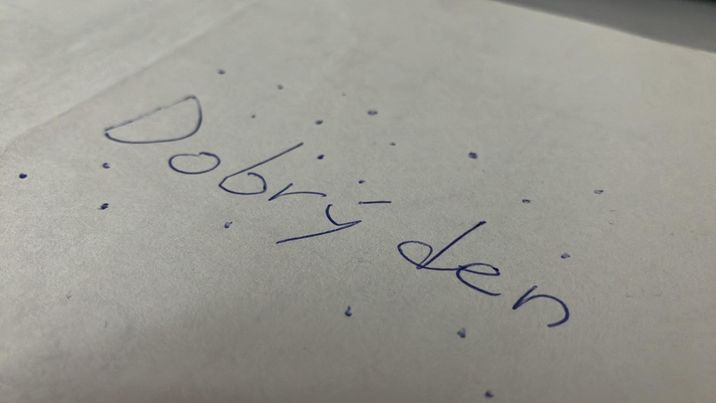 Dobrý den